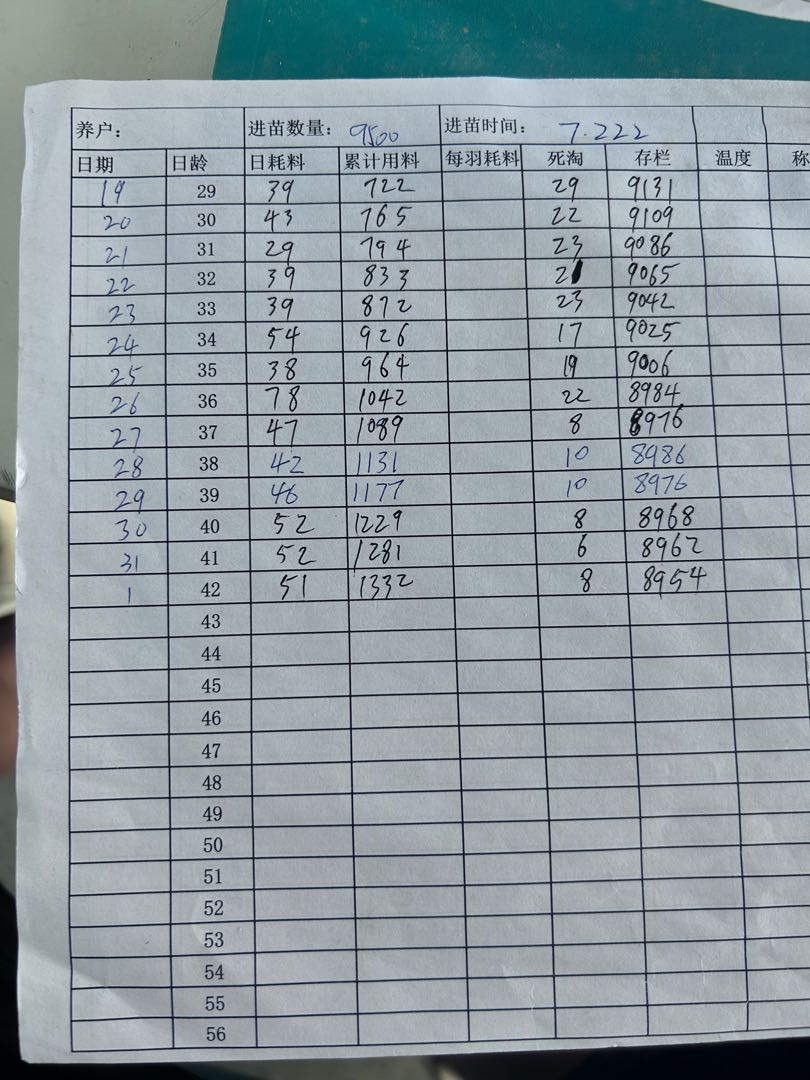 养户： 进苗数量：9500 进苗时间：7.222
日期 日龄 日耗料 累计用料 每羽耗料 死淘 存栏 温度 称
19 29 39 722 29 9131
20 30 43 765 22 9109
21 31 29 794 23 9086
22 32 39 833 21 9065
23 33 39 872 23 9042
24 34 54 926 17 9025
25 35 38 964 19 9006
26 36 78 1042 22 8984
27 37 47 1089 8 8976
28 38 42 1131 10 8986
29 39 46 1177 10 8976
30 40 52 1229 8 8968
31 41 52 1281 6 8962
1 42 51 1332 8 8954
43
44
45
46
47
48
49
50
51
52
53
54
55
56